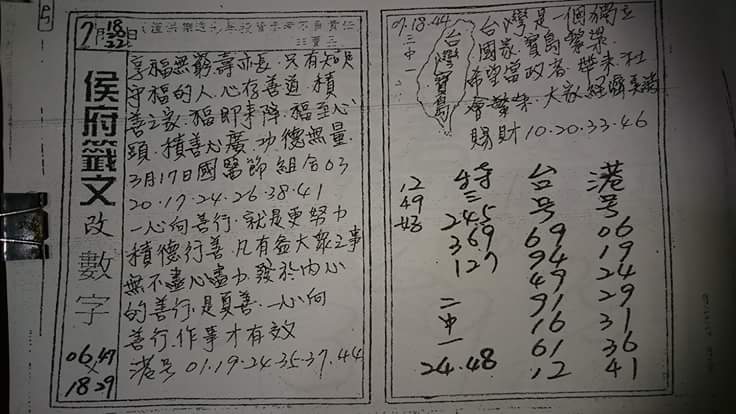 7月 18 20 22
侯府籤文
改數字
06.47
18 29
享福無窮壽亦長.只有知足
守福的人.心存善道.積
善之家.福即來降.福至心
頭.積善心廣.功德無量.
3月17日國醫節組合03
20.17.24.26.38.41
一心向善行.就是更努力
積德行善.凡有益大眾之事
無不盡心盡力.發於內心
的善行.是真善.一心向
善行.作事才有效
港号 01.19.24.35.37.44
07.18.44
三中一
台灣寶島
台灣是一個獨立
國家.寶島繁榮.
希望當政者.帶來.社
會繁榮.大家經濟
賜財10.20.33.46
12
49
特三
24.5
369
127
二中一
24.48
台号
69
94
49
91
16
61
12
港号
06
19
24
29
31
36
41